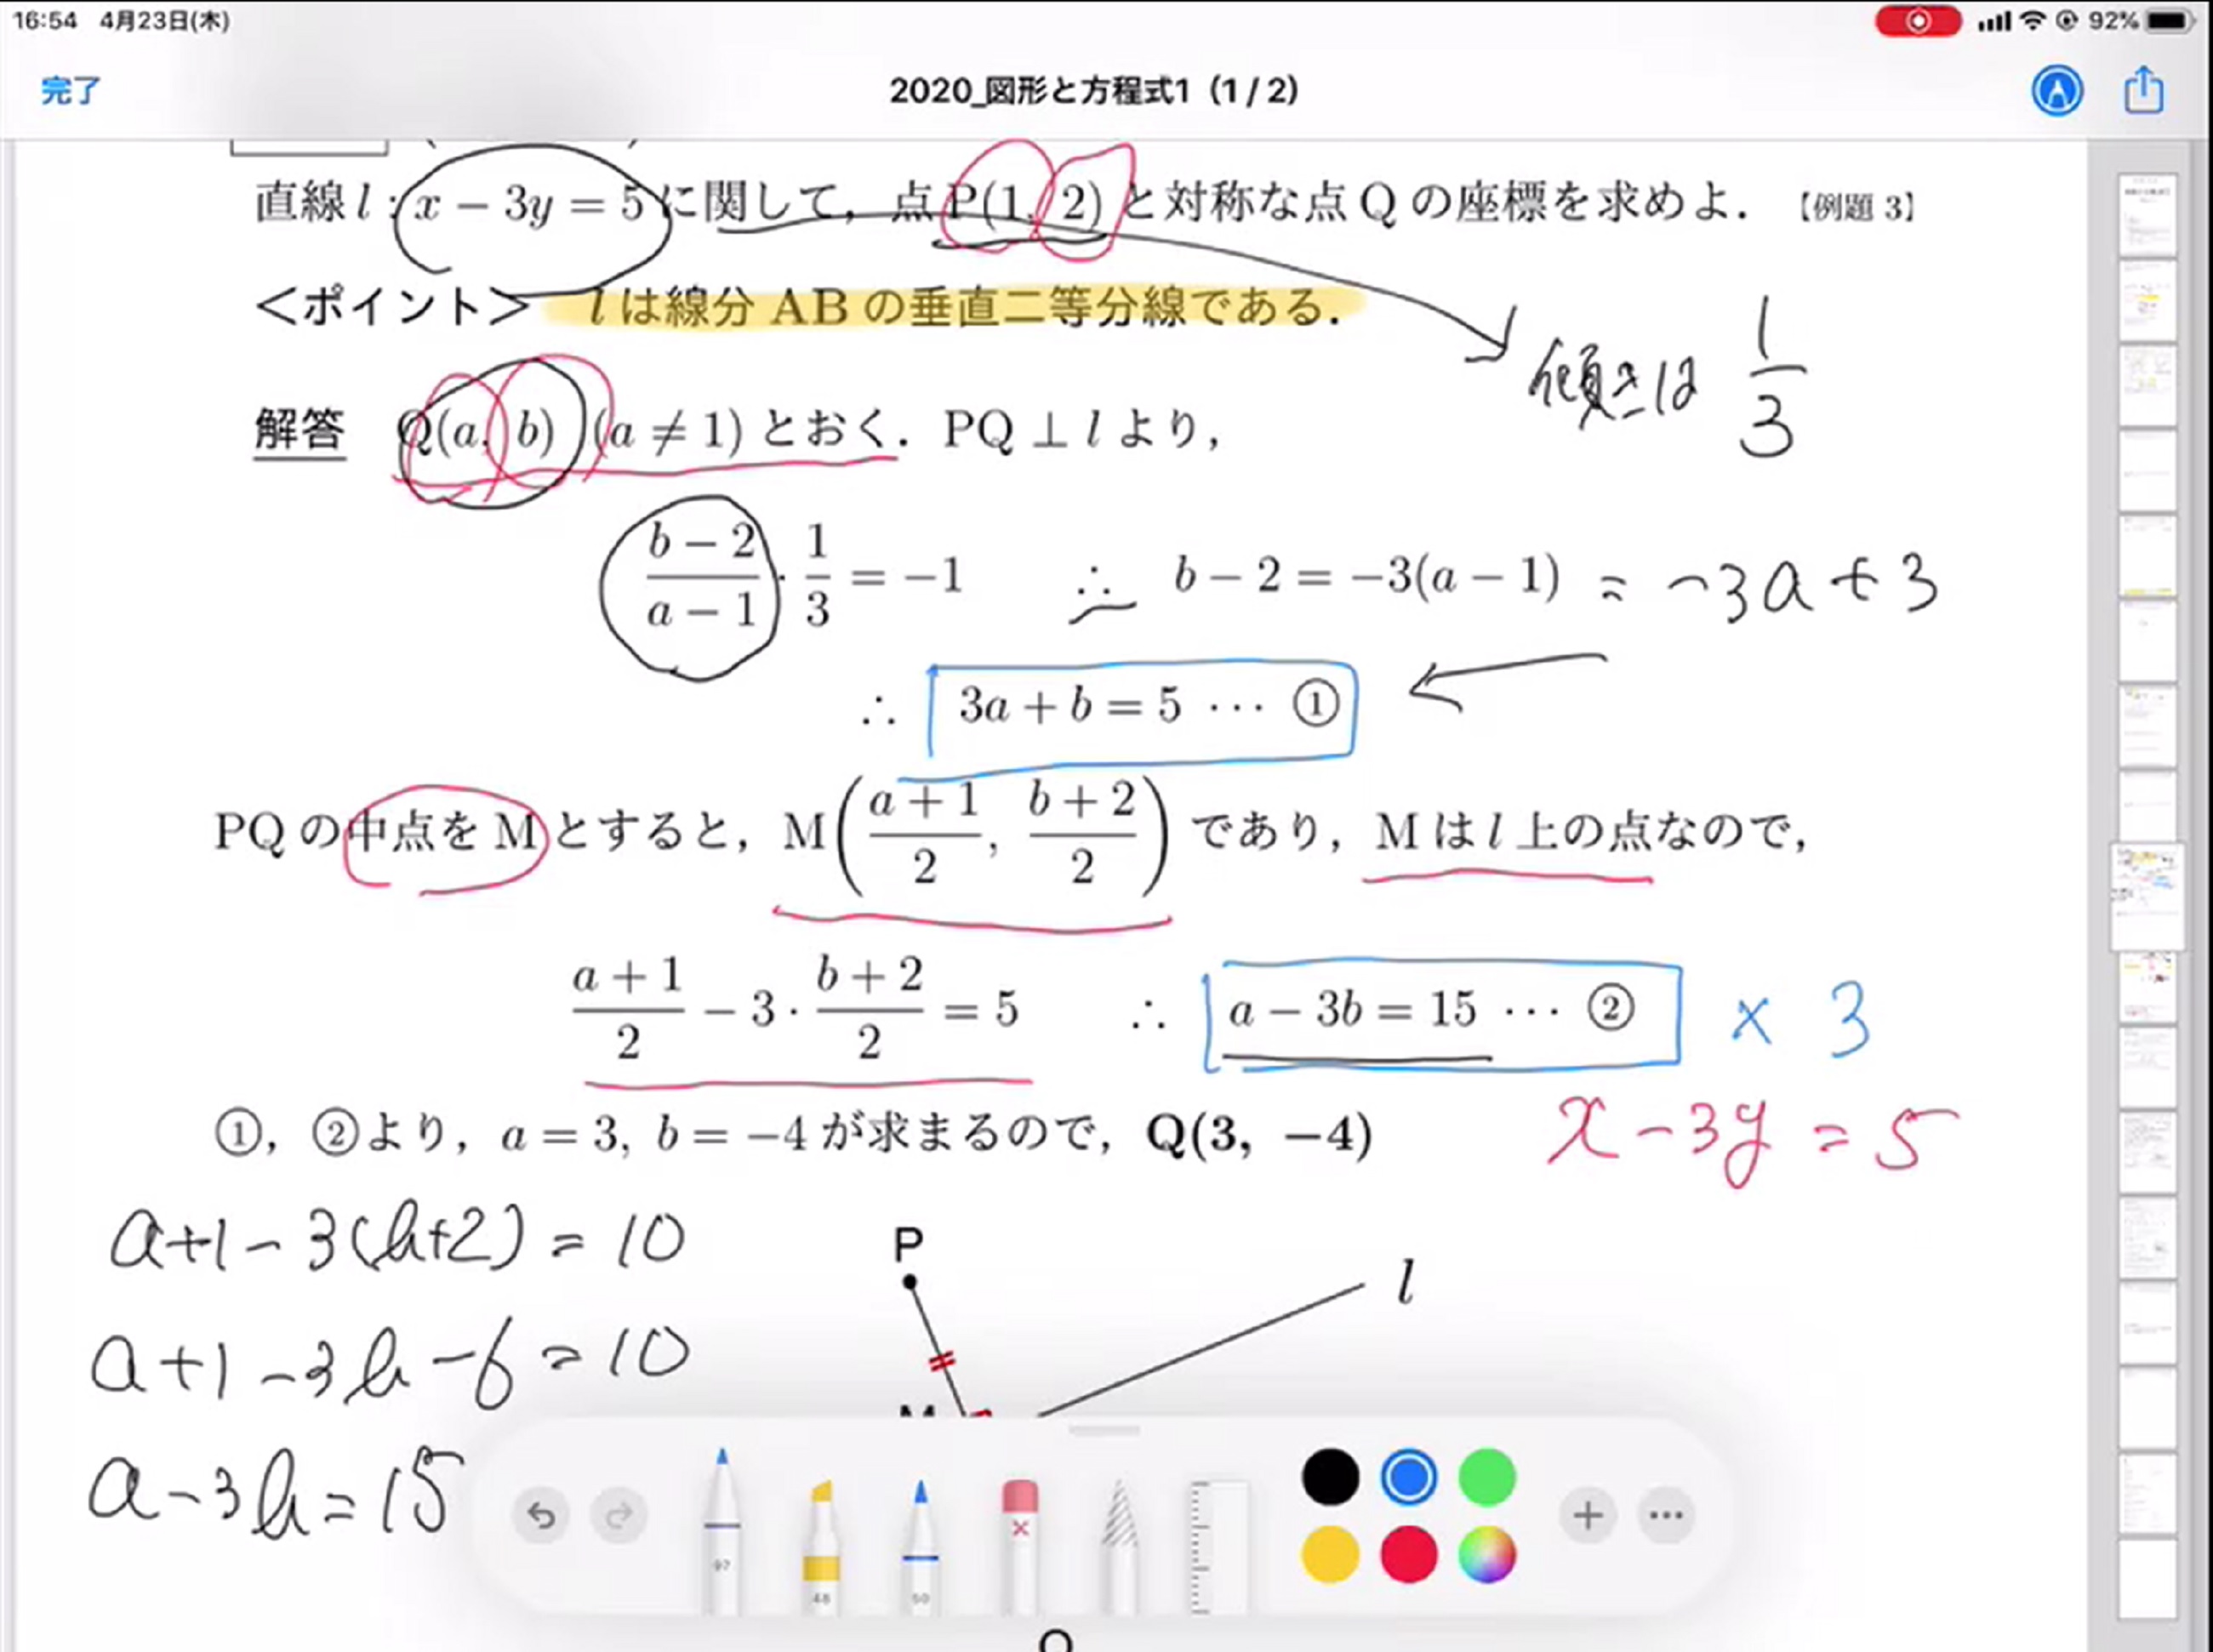 16:54 4月23日(木) 92%
完了 2020_図形と方程式1（1 / 2）
直線 l : x − 3y = 5 に関して，点 P(1, 2) と対称な点 Q の座標を求めよ．【例題 3】
＜ポイント＞ l は線分 AB の垂直二等分線である．
傾きは 1/3
解答 Q(a, b) (a ≠ 1) とおく．PQ ⊥ l より，
(b − 2)/(a − 1) · 1/3 = −1 ∴ b − 2 = −3(a − 1) = −3a + 3
∴ 3a + b = 5 ··· ①
PQ の中点を M とすると，M((a + 1)/2, (b + 2)/2) であり，M は l 上の点なので，
(a + 1)/2 − 3 · (b + 2)/2 = 5 ∴ a − 3b = 15 ··· ② × 3
①，②より，a = 3, b = −4 が求まるので，Q(3, −4) x − 3y = 5
a+1 − 3(b+2) = 10
P
l
a+1 − 3b − 6 = 10
M
a − 3b = 15
97 48 50
Q